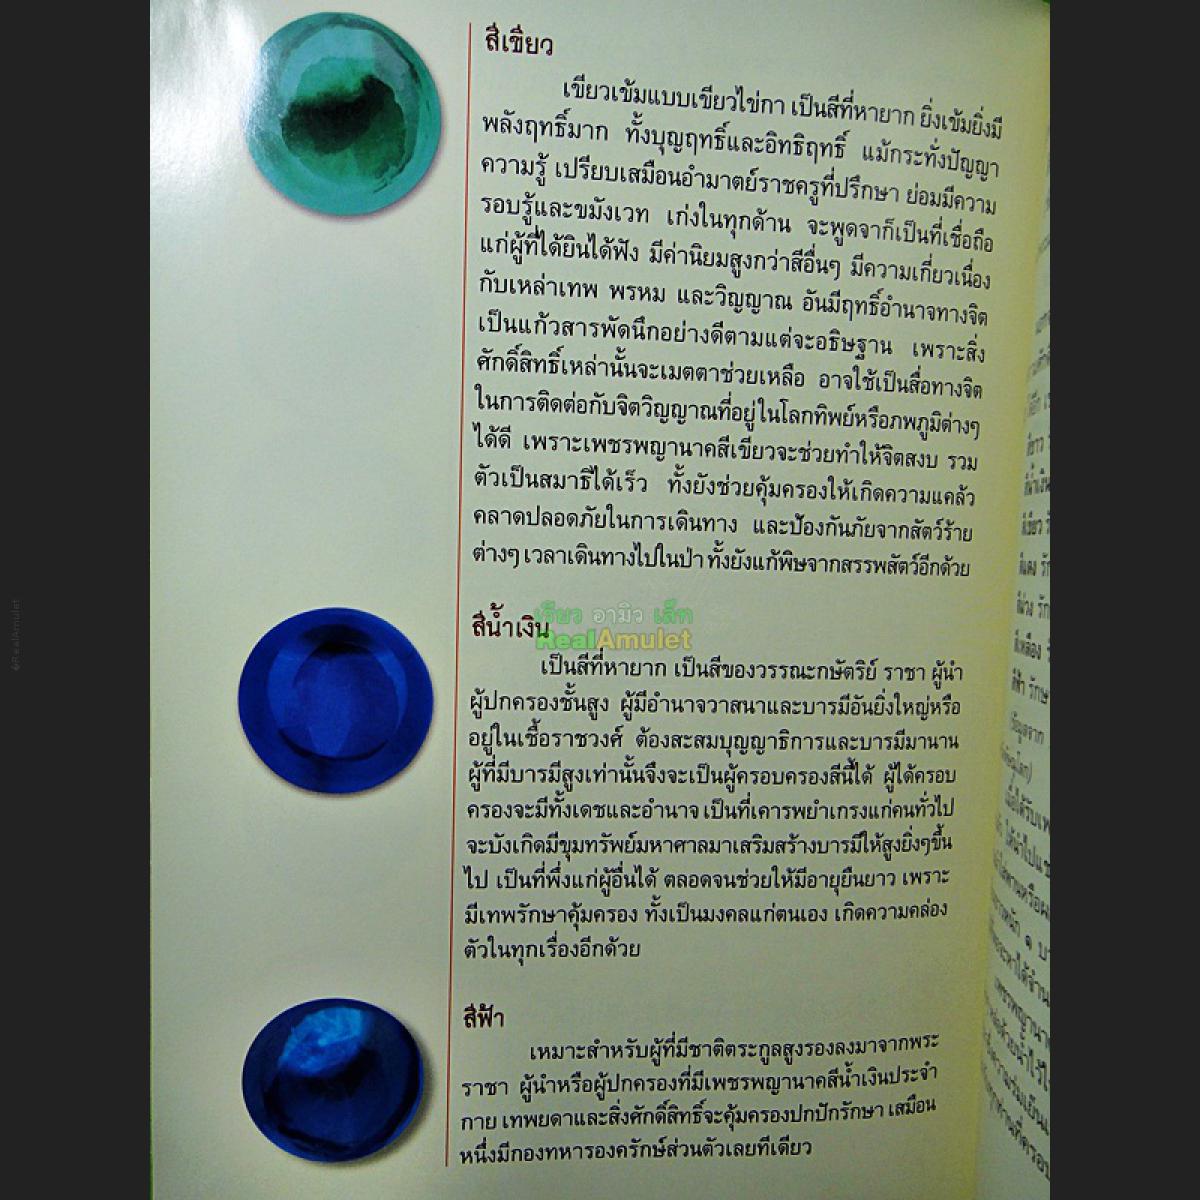 สีเขียว
เขียวเข้มแบบเขียวไข่กา เป็นสีที่หายาก ยิ่งเข้มยิ่งมี
พลังฤทธิ์มาก ทั้งบุญฤทธิ์และอิทธิฤทธิ์ แม้กระทั่งปัญญา
ความรู้ เปรียบเสมือนอำมาตย์ราชครูที่ปรึกษา ย่อมมีความ
รอบรู้และขมังเวท เก่งในทุกด้าน จะพูดจาก็เป็นที่เชื่อถือ
แก่ผู้ที่ได้ยินได้ฟัง มีค่านิยมสูงกว่าสีอื่นๆ มีความเกี่ยวเนื่อง
กับเหล่าเทพ พรหม และวิญญาณ อันมีฤทธิ์อำนาจทางจิต
เป็นแก้วสารพัดนึกอย่างดีตามแต่จะอธิษฐาน เพราะสิ่ง
ศักดิ์สิทธิ์เหล่านั้นจะเมตตาช่วยเหลือ อาจใช้เป็นสื่อทางจิต
ในการติดต่อกับจิตวิญญาณที่อยู่ในโลกทิพย์หรือภพภูมิต่างๆ
ได้ดี เพราะเพชรพญานาคสีเขียวจะช่วยทำให้จิตสงบ รวม
ตัวเป็นสมาธิได้เร็ว ทั้งยังช่วยคุ้มครองให้เกิดความแคล้ว
คลาดปลอดภัยในการเดินทาง และป้องกันภัยจากสัตว์ร้าย
ต่างๆ เวลาเดินทางไปในป่า ทั้งยังแก้พิษจากสรรพสัตว์อีกด้วย
เรียว อามิว เล็ท
RealAmulet
สีน้ำเงิน
เป็นสีที่หายาก เป็นสีของวรรณะกษัตริย์ ราชา ผู้นำ
ผู้ปกครองชั้นสูง ผู้มีอำนาจวาสนาและบารมีอันยิ่งใหญ่หรือ
อยู่ในเชื้อราชวงศ์ ต้องสะสมบุญญาธิการและบารมีมานาน
ผู้ที่มีบารมีสูงเท่านั้นจึงจะเป็นผู้ครอบครองสีนี้ได้ ผู้ได้ครอบ
ครองจะมีทั้งเดชและอำนาจ เป็นที่เคารพยำเกรงแก่คนทั่วไป
จะบังเกิดมีขุมทรัพย์มหาศาลมาเสริมสร้างบารมีให้สูงยิ่งๆขึ้น
ไป เป็นที่พึ่งแก่ผู้อื่นได้ ตลอดจนช่วยให้มีอายุยืนยาว เพราะ
มีเทพรักษาคุ้มครอง ทั้งเป็นมงคลแก่ตนเอง เกิดความคล่อง
ตัวในทุกเรื่องอีกด้วย
สีฟ้า
เหมาะสำหรับผู้ที่มีชาติตระกูลสูงรองลงมาจากพระ
ราชา ผู้นำหรือผู้ปกครองที่มีเพชรพญานาคสีน้ำเงินประจำ
กาย เทพยดาและสิ่งศักดิ์สิทธิ์จะคุ้มครองปกปักรักษา เสมือน
หนึ่งมีกองทหารองครักษ์ส่วนตัวเลยทีเดียว
©RealAmulet